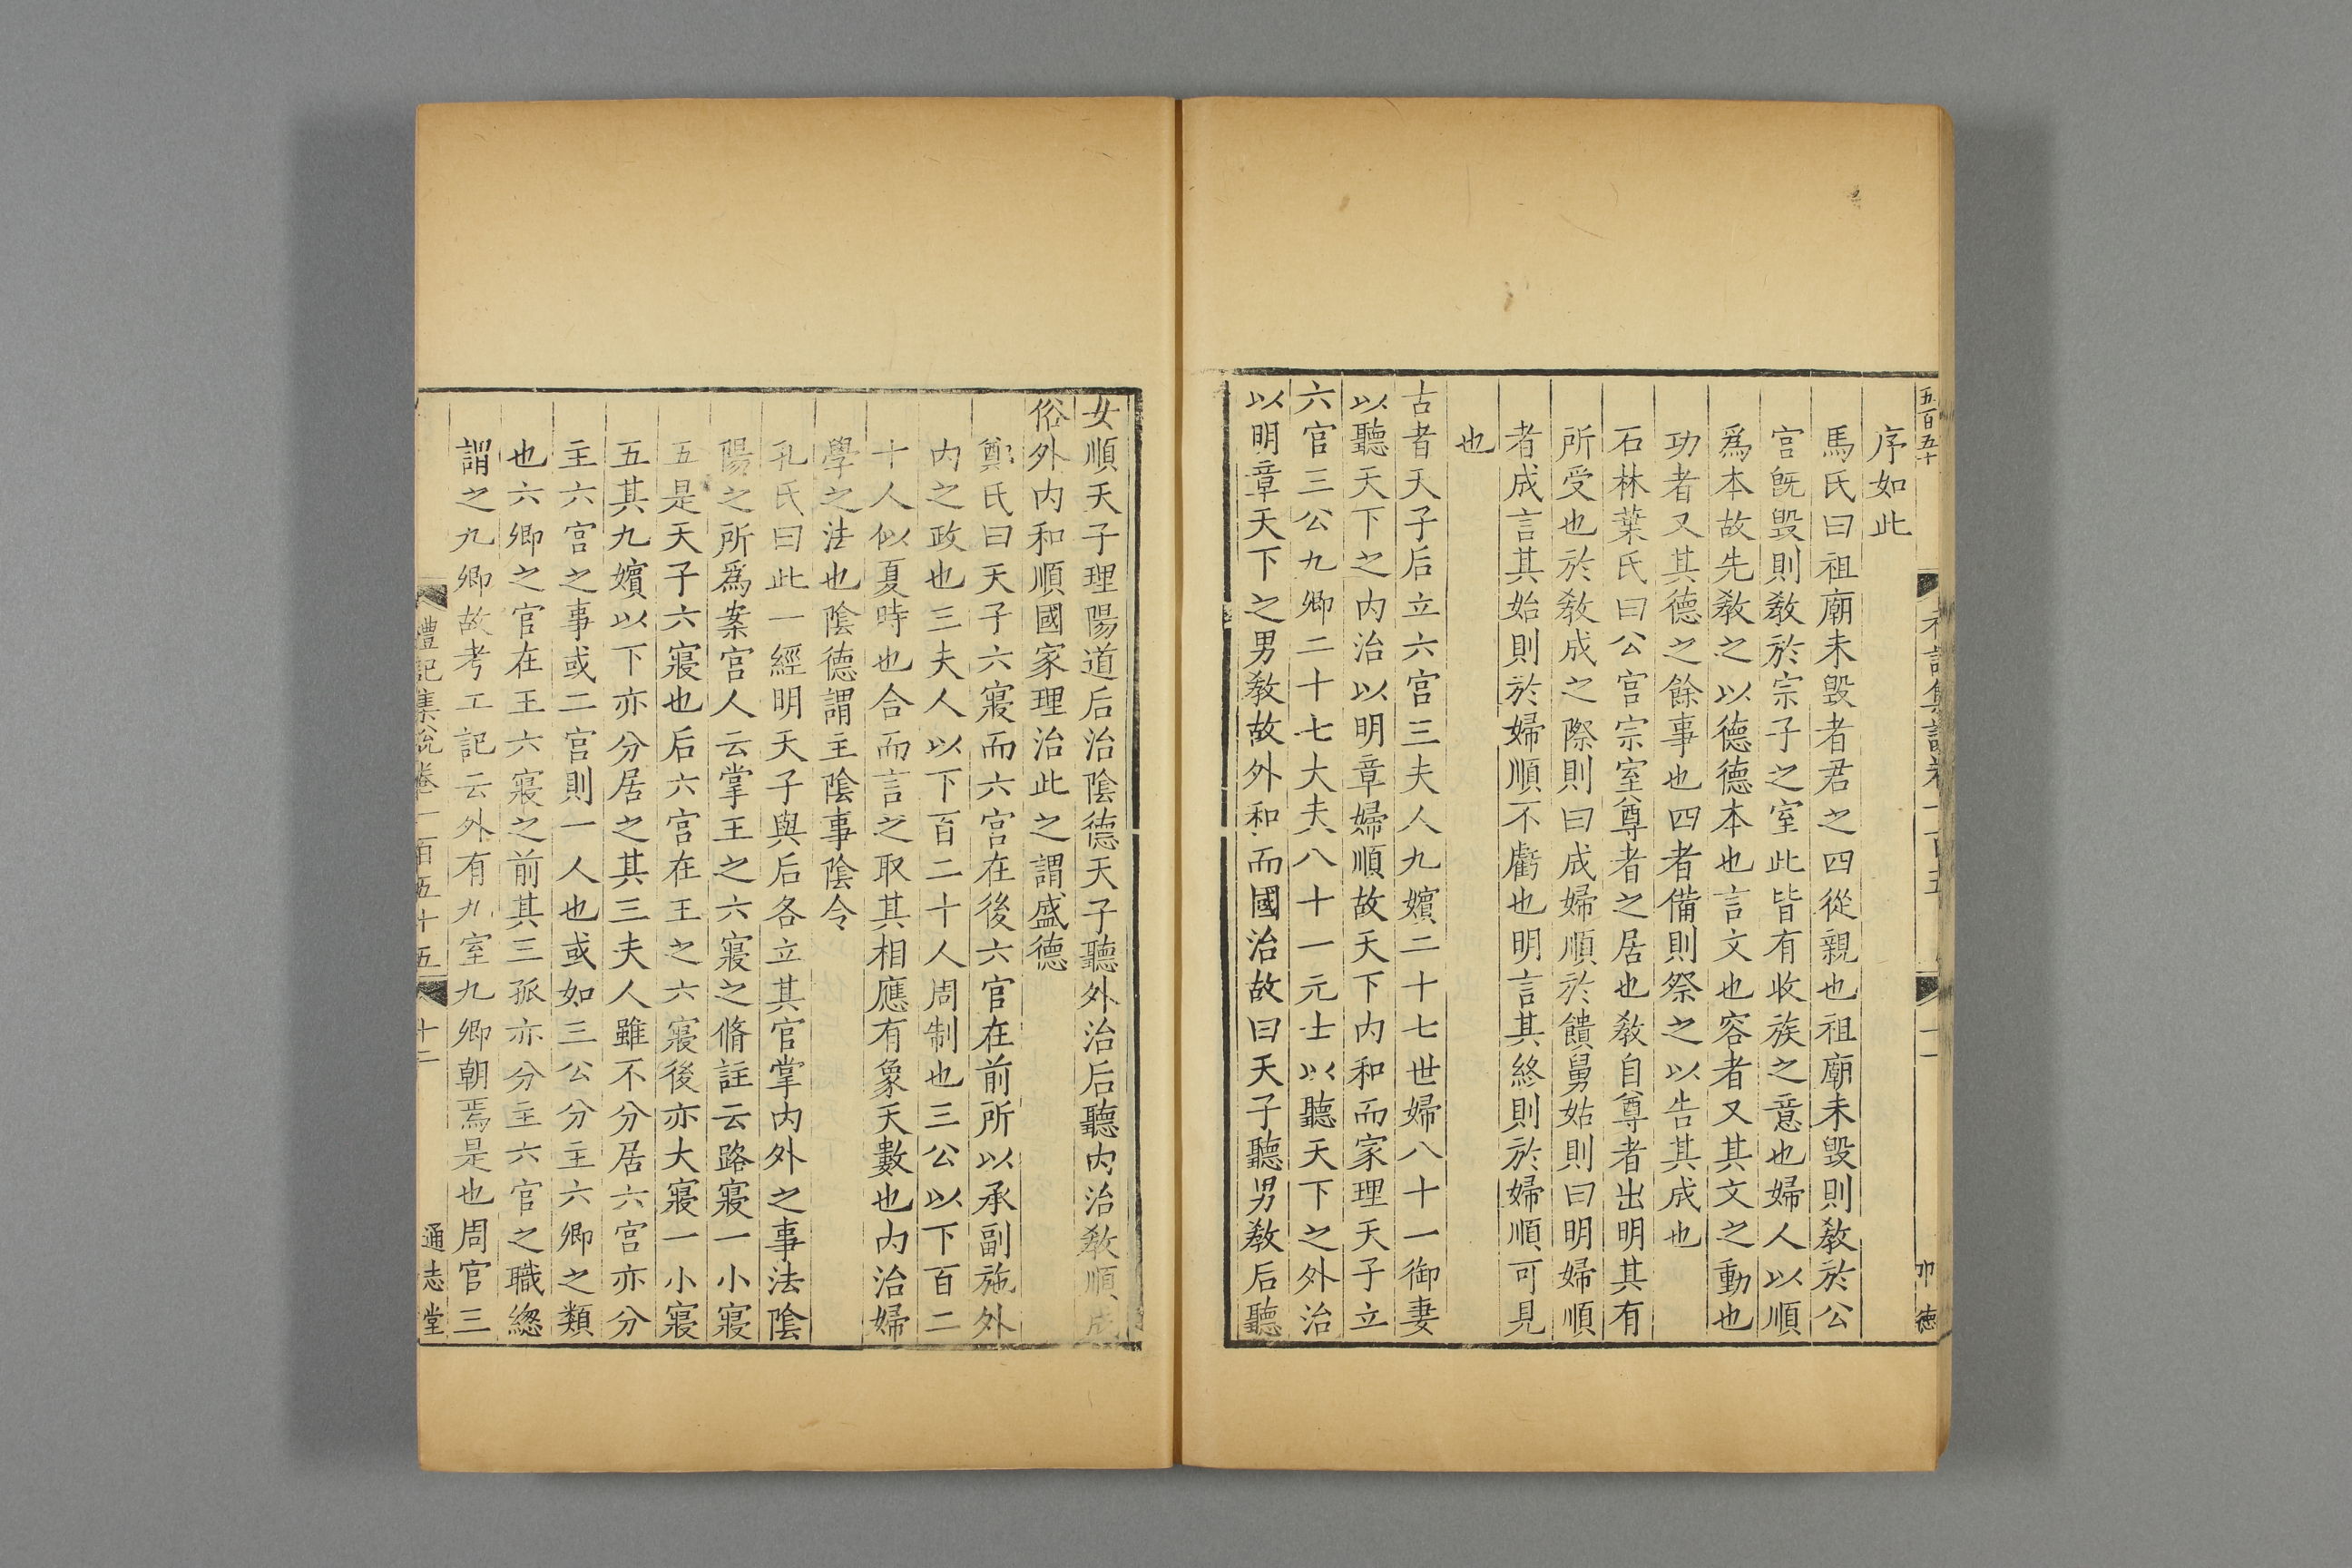 五百五十
序如此
馬氏曰祖廟未毀者君之四從親也祖廟未毀則敎於公
宮旣毀則敎於宗子之室此皆有收族之意也婦人以順
爲本故先敎之以德德本也言文也容者又其文之動也
功者又其德之餘事也四者備則祭之以告其成也
石林葉氏曰公宮宗室尊者之居也敎自尊者出明其有
所受也於敎成之際則曰成婦順於饋舅姑則曰明婦順
者成言其始則於婦順不虧也明言其終則於婦順可見
也
古者天子后立六宮三夫人九嬪二十七世婦八十一御妻
以聽天下之內治以明章婦順故天下內和而家理天子立
六官三公九卿二十七大夫八十一元士以聽天下之外治
以明章天下之男敎故外和而國治故曰天子聽男敎后聽
女順天子理陽道后治陰德天子聽外治后聽內治敎順成
俗外內和順國家理治此之謂盛德
鄭氏曰天子六寢而六宮在後六官在前所以承副施外
內之政也三夫人以下百二十人周制也三公以下百二
十人似夏時也合而言之取其相應有象天數也內治婦
學之法也陰德謂主陰事陰令
孔氏曰此一經明天子與后各立其官掌內外之事法陰
陽之所爲案宮人云掌王之六寢之脩註云路寢一小寢
五是天子六寢也后六宮在王之六寢後亦大寢一小寢
五其九嬪以下亦分居之其三夫人雖不分居六宮亦分
主六宮之事或二宮則一人也或如三公分主六卿之類
也六卿之官在王六寢之前其三孤亦分主六官之職總
謂之九卿故考工記云外有九室九卿朝焉是也周官三
禮記集說卷一百五十五 十二 通志堂